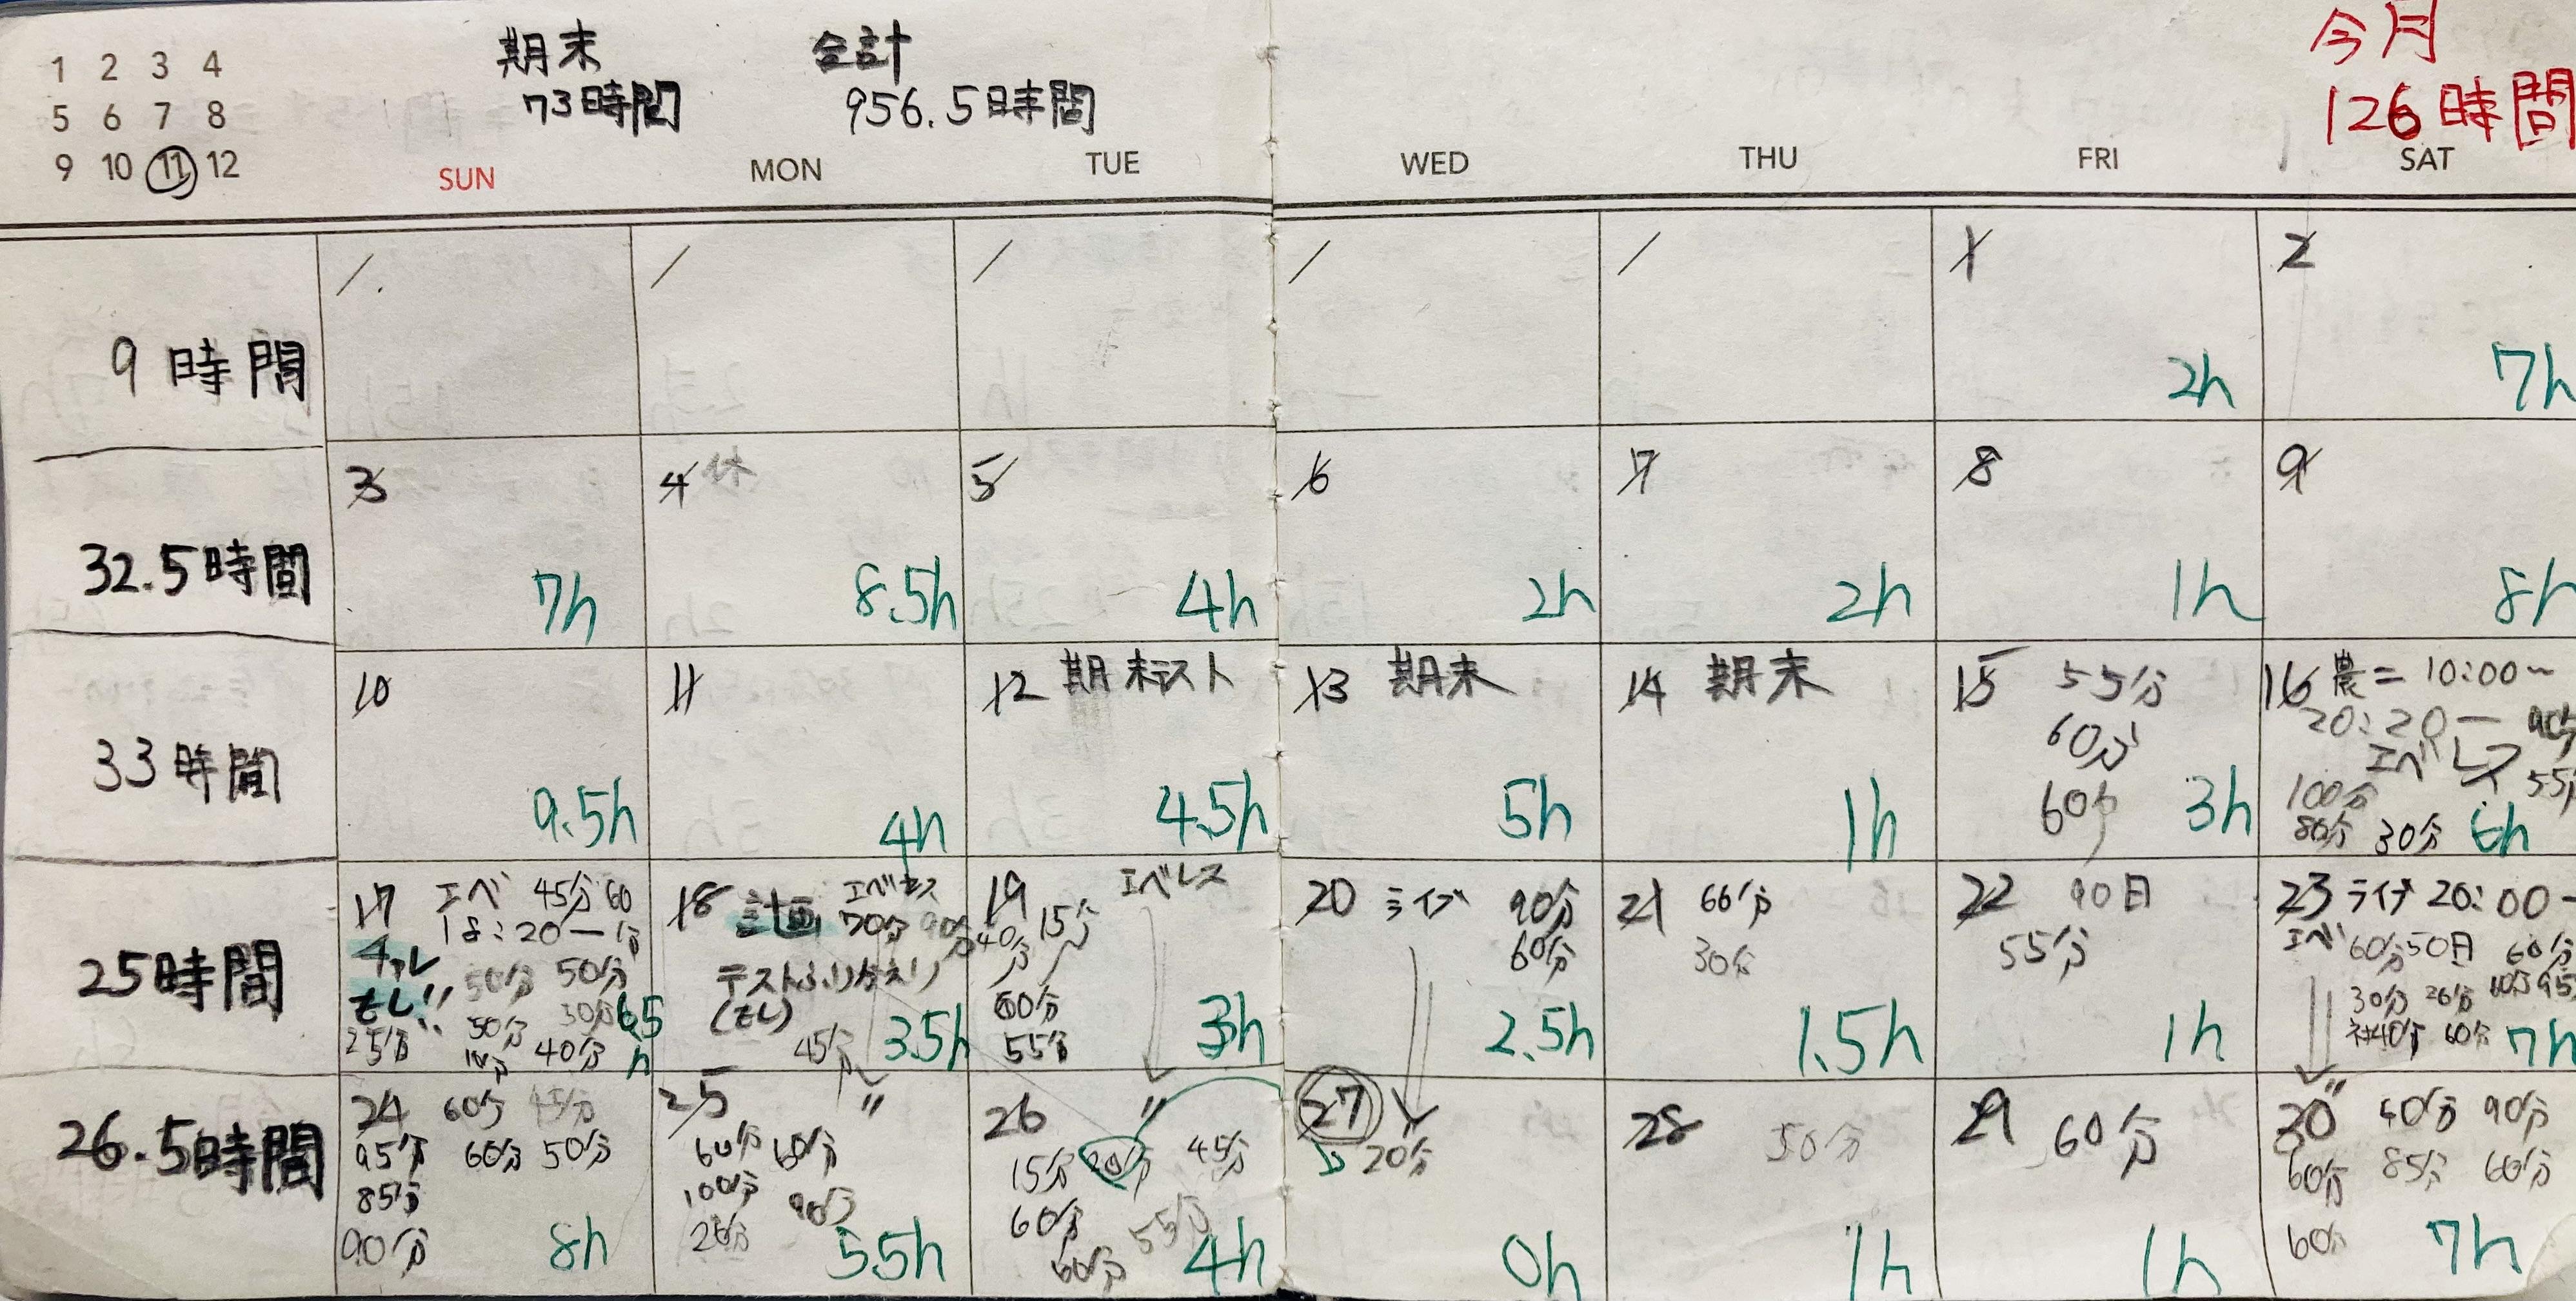 1 2 3 4
5 6 7 8
9 10 11 12
期末
73時間
合計
956.5時間
今月
126時間
SUN MON TUE WED THU FRI SAT
9時間
1
2h
2
7h
32.5時間
3
7h
4 休
8.5h
5
4h
6
2h
7
2h
8
1h
9
8h
33時間
10
9.5h
11
4h
12 期末テスト
4.5h
13 期末
5h
14 期末
1h
15 55分
60分
60分 3h
16 農二 10:00~
20:20ー
エベレス 55分
100分
80分 30分 6h
25時間
17 エベ 45分 60
18:20ー 分
チャレ
ゼレ!!
50分 50分
50分 30分 6.5
25分 40分 h
18 計画 エベレス
70分 90分
テストふりかえり
(ゼレ)
45分 3.5h
19 エベレス
40分 15分
60分
55分 3h
20 ライブ 90分
60分
2.5h
21 66分
30分
1.5h
22 90日
55分
1h
23 ライブ 20:00ー
エベ 60分 50日 60分
30分
社40分 60分 7h
26.5時間
24 60分 45分
95分 60分 50分
85分
90分 8h
25 〃
60分 60分
100分 90分
20分 5.5h
26 〃
15分 45分
60分 55分
60分 4h
27
20分
0h
28 50分
1h
29 60分
1h
30 〃 40分 90分
60分 85分 60分
60分 7h